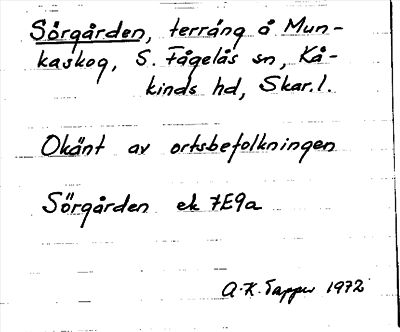 Sörgården, terräng å Mun-
kaskog, S. Fågelås sn, Kå-
kinds hd, Skar.l.
Okänt av ortsbefolkningen
Sörgården ek 7E9a
A.K. Tapper 1972